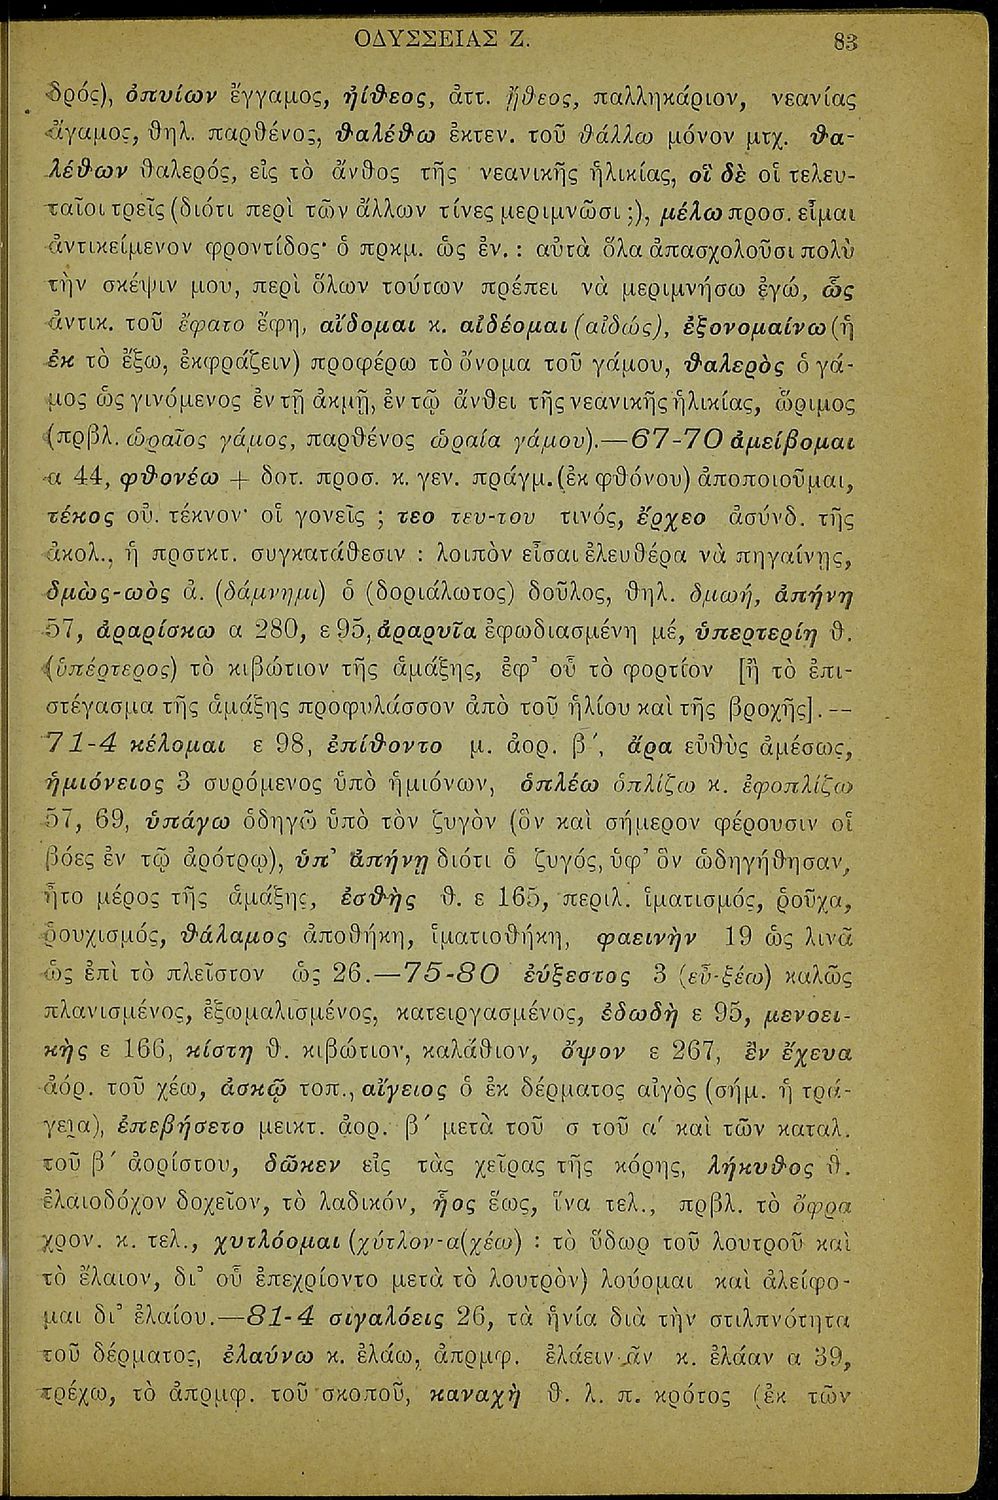 ΟΔΥΣΣΕΙΑΣ Ζ. 83
δρός), ὀπυίων ἔγγαμος, ἠίθεος, ἀττ. ᾔθεος, παλληκάριον, νεανίας
ἄγαμος, θηλ. παρθένος, θαλέθω ἐκτεν. τοῦ θάλλω μόνον μτχ. θα-
λέθων θαλερός, εἰς τὸ ἄνθος τῆς νεανικῆς ἡλικίας, οἳ δὲ οἱ τελευ-
ταῖοι τρεῖς (διότι περὶ τῶν ἄλλων τίνες μεριμνῶσι ;), μέλω προσ. εἶμαι
ἀντικείμενον φροντίδος· ὁ πρκμ. ὡς ἐν. : αὐτὰ ὅλα ἀπασχολοῦσι πολὺ
τὴν σκέψιν μου, περὶ ὅλων τούτων πρέπει νὰ μεριμνήσω ἐγώ, ὣς
ἀντικ. τοῦ ἔφατο ἔφη, αἴδομαι κ. αἰδέομαι (αἰδώς), ἐξονομαίνω (ἡ
ἐκ τὸ ἔξω, ἐκφράζειν) προφέρω τὸ ὄνομα τοῦ γάμου, θαλερὸς ὁ γά-
μος ὡς γινόμενος ἐν τῇ ἀκμῇ, ἐν τῷ ἄνθει τῆς νεανικῆς ἡλικίας, ὥριμος
(πρβλ. ὡραῖος γάμος, παρθένος ὡραία γάμου).—67-70 ἀμείβομαι
α 44, φθονέω + δοτ. προσ. κ. γεν. πράγμ. (ἐκ φθόνου) ἀποποιοῦμαι,
τέκος οὐ. τέκνον· οἱ γονεῖς ; τεο τευ-του τινός, ἔρχεο ἀσύνδ. τῆς
ἀκολ., ἡ προτκτ. συγκατάθεσιν : λοιπὸν εἶσαι ἐλευθέρα νὰ πηγαίνῃς,
δμὼς-ωὸς ἀ. (δάμνημι) ὁ (δοριάλωτος) δοῦλος, θηλ. δμωή, ἀπήνη
57, ἀραρίσκω α 280, ε 95, ἀραρυῖα ἐφωδιασμένη μέ, ὑπερτερίη θ.
(ὑπέρτερος) τὸ κιβώτιον τῆς ἁμάξης, ἐφ’ οὗ τὸ φορτίον [ἢ τὸ ἐπι-
στέγασμα τῆς ἁμάξης προφυλάσσον ἀπὸ τοῦ ἡλίου καὶ τῆς βροχῆς]. —
71-4 κέλομαι ε 98, ἐπίθοντο μ. ἀορ. β΄, ἄρα εὐθὺς ἀμέσως,
ἡμιόνειος 3 συρόμενος ὑπὸ ἡμιόνων, ὁπλέω ὁπλίζω κ. ἐφοπλίζω
57, 69, ὑπάγω ὁδηγῶ ὑπὸ τὸν ζυγὸν (ὃν καὶ σήμερον φέρουσιν οἱ
βόες ἐν τῷ ἀρότρῳ), ὑπ’ ἀπήνῃ διότι ὁ ζυγός, ὑφ’ ὃν ὡδηγήθησαν,
ἦτο μέρος τῆς ἁμάξης, ἐσθὴς θ. ε 165, περιλ. ἱματισμός, ῥοῦχα,
ῥουχισμός, θάλαμος ἀποθήκη, ἱματιοθήκη, φαεινὴν 19 ὡς λινᾶ
ὡς ἐπὶ τὸ πλεῖστον ὡς 26.—75-80 ἐύξεστος 3 (εὖ-ξέω) καλῶς
πλανισμένος, ἐξωμαλισμένος, κατειργασμένος, ἐδωδὴ ε 95, μενοει-
κὴς ε 166, κίστη θ. κιβώτιον, καλάθιον, ὄψον ε 267, ἐν ἔχευα
ἀόρ. τοῦ χέω, ἀσκῷ τοπ., αἴγειος ὁ ἐκ δέρματος αἰγὸς (σήμ. ἡ τρά-
γεια), ἐπεβήσετο μεικτ. ἀορ. β΄ μετὰ τοῦ σ τοῦ α΄ καὶ τῶν καταλ.
τοῦ β΄ ἀορίστου, δῶκεν εἰς τὰς χεῖρας τῆς κόρης, λήκυθος θ.
ἐλαιοδόχον δοχεῖον, τὸ λαδικόν, ἧος ἕως, ἵνα τελ., πρβλ. τὸ ὄφρα
χρον. κ. τελ., χυτλόομαι (χύτλον-α(χέω) : τὸ ὕδωρ τοῦ λουτροῦ καὶ
τὸ ἔλαιον, δι’ οὗ ἐπεχρίοντο μετὰ τὸ λουτρὸν) λούομαι καὶ ἀλείφο-
μαι δι’ ἐλαίου.—81-4 σιγαλόεις 26, τὰ ἡνία διὰ τὴν στιλπνότητα
τοῦ δέρματος, ἐλαύνω κ. ἐλάω, ἀπρμφ. ἐλάειν-ᾶν κ. ἐλάαν α 39,
τρέχω, τὸ ἀπρμφ. τοῦ σκοποῦ, καναχὴ θ. λ. π. κρότος (ἐκ τῶν